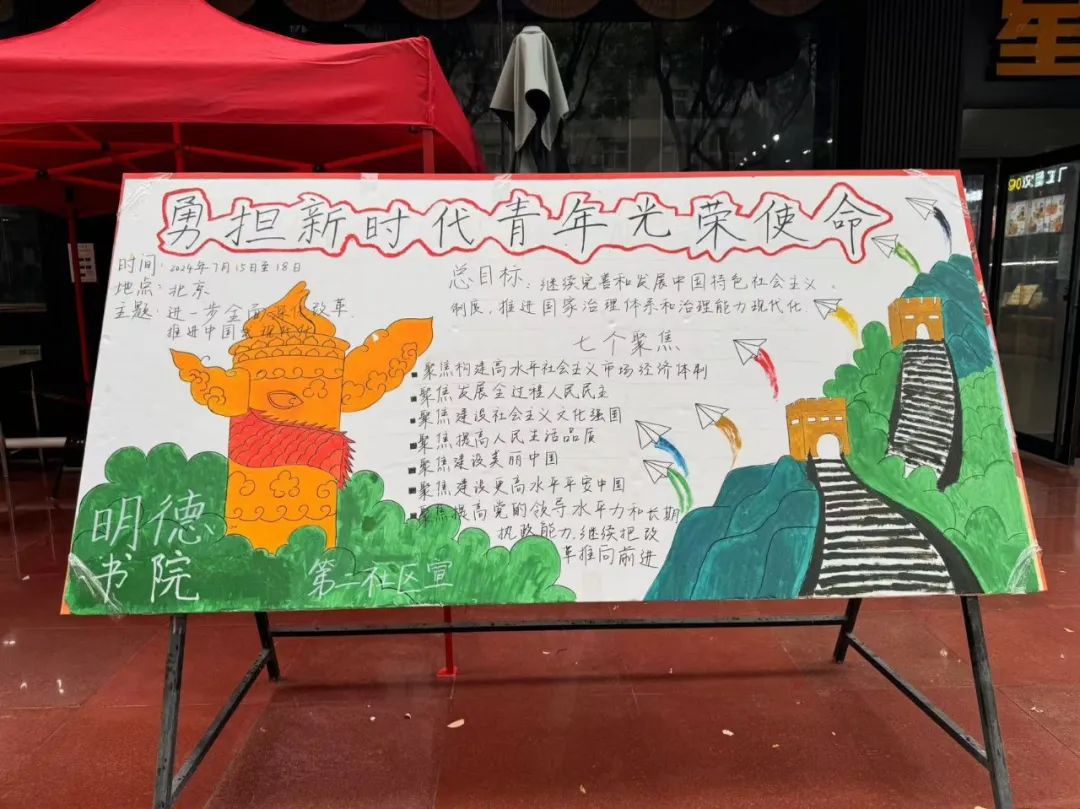 勇担新时代青年光荣使命
时间：2024年7月15日至18日
地点：北京
主题：进一步全面深化改革、
推进中国
总目标：继续完善和发展中国特色社会主义
制度、推进国家治理体系和治理能力现代化
七个聚焦
聚焦构建高水平社会主义市场经济体制
聚焦发展全过程人民民主
聚焦建设社会主义文化强国
聚焦提高人民生活品质
聚焦建设美丽中国
聚焦建设更高水平平安中国
聚焦提高党的领导水平力和长期
执政能力、继续把改
革推向前进
明德
书院
第二社区宣